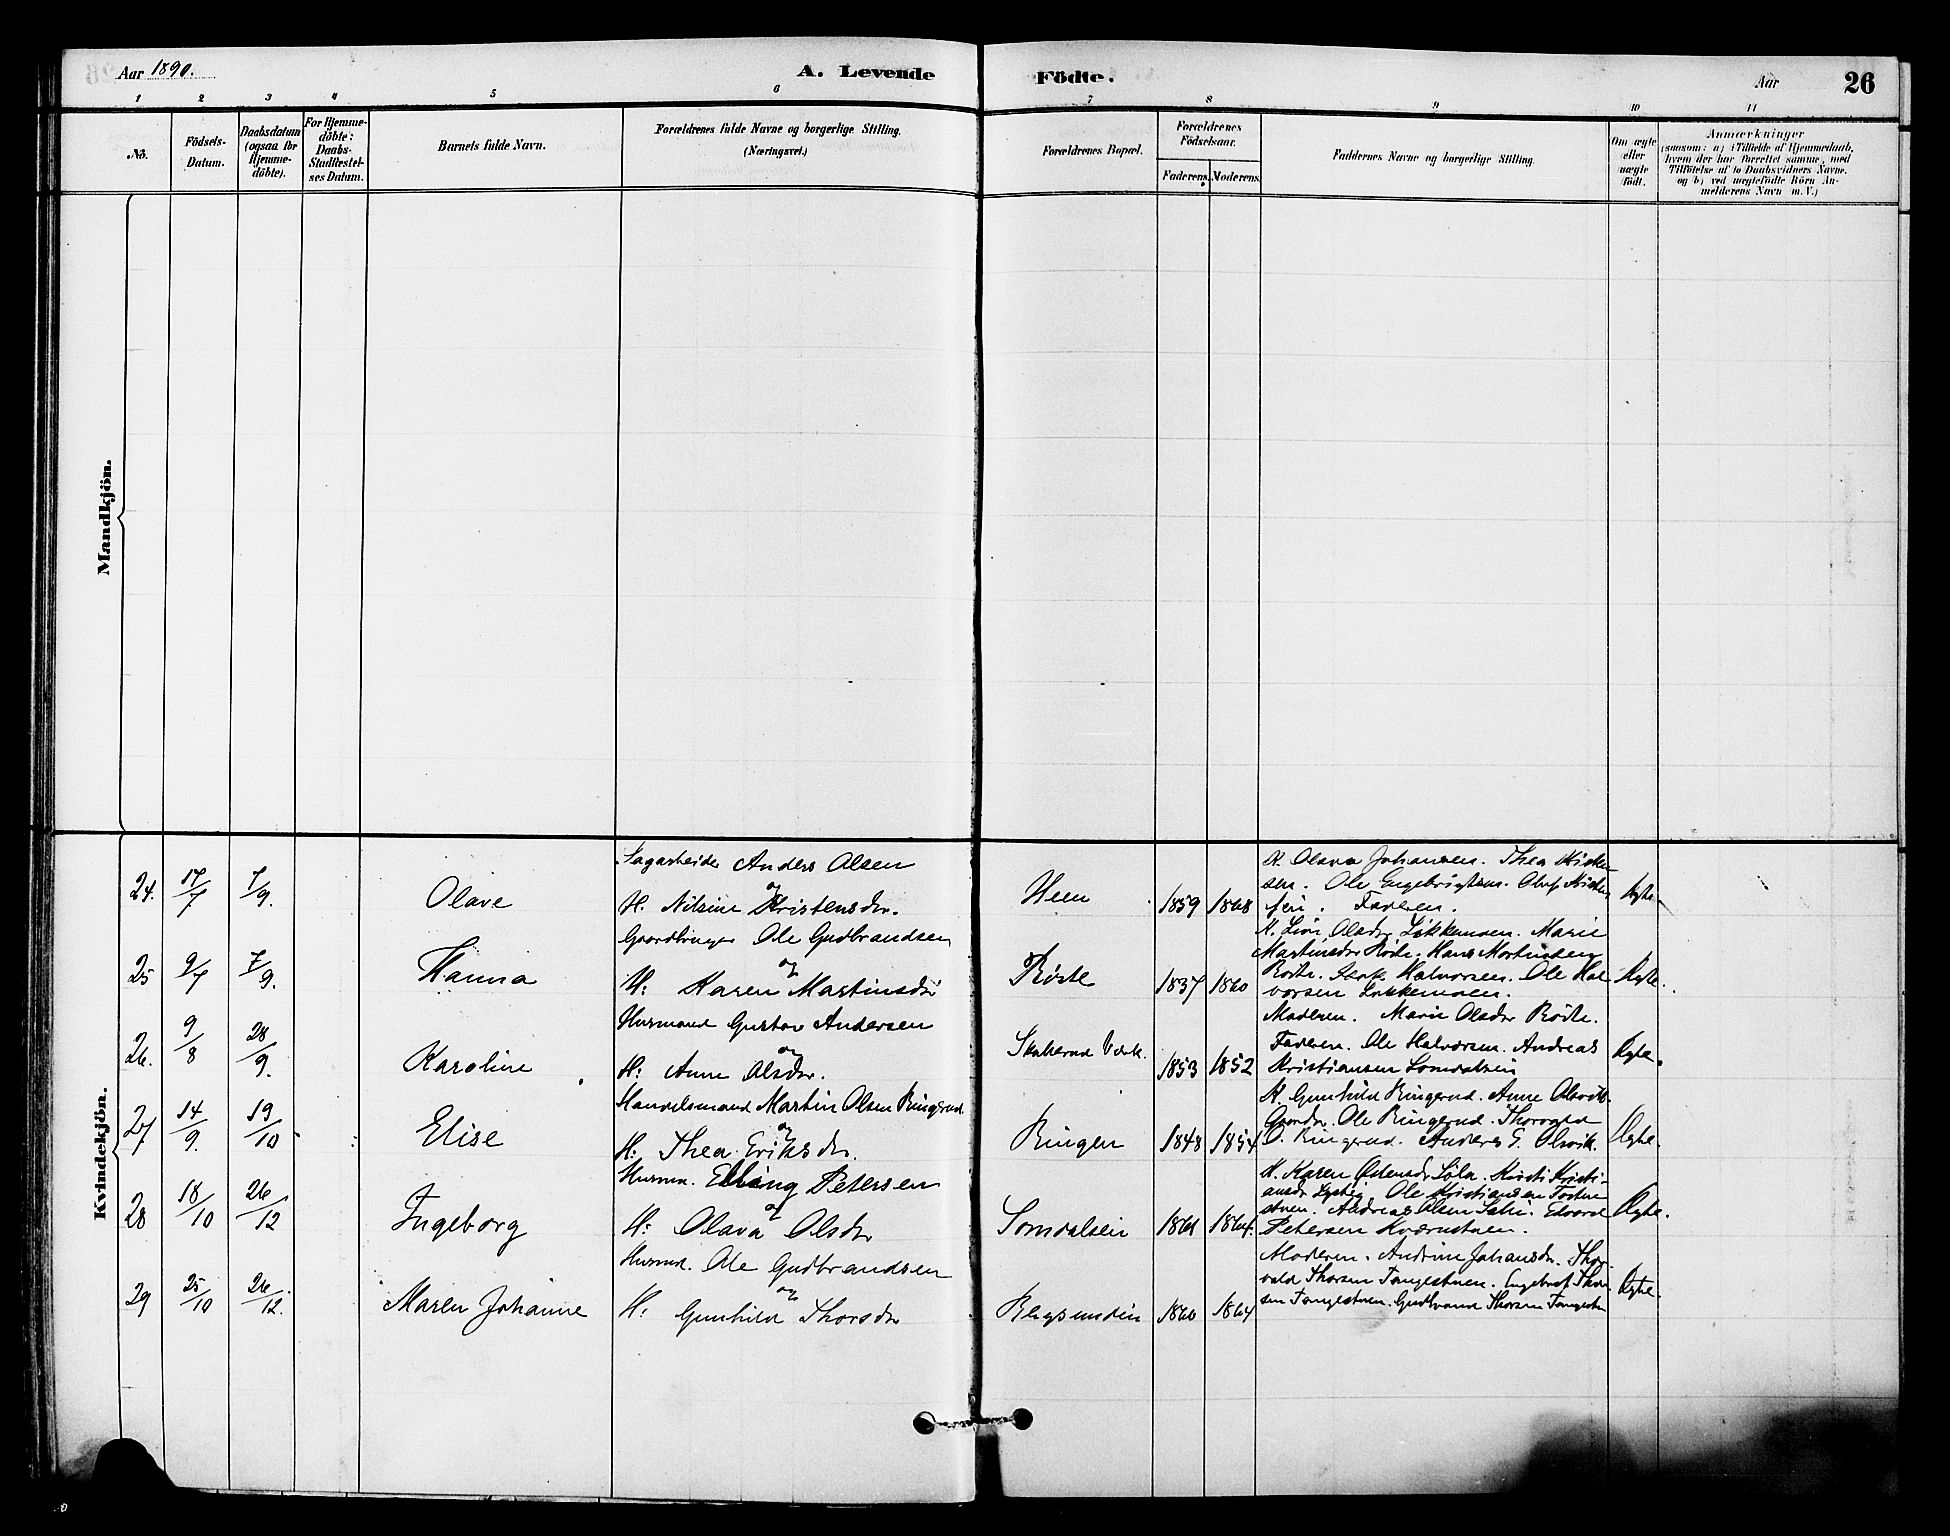 Aar 1890.
A. Levende
Födte.
Aar
26
1 2 3 4 5 6 7 8 9 10 11
No.
Födsels-
Datum.
Daabsdatum
(ogsaa for
Hjemme-
döbte).
For Hjemme-
döbte:
Daabs-
Stadfæstel-
ses Datum.
Barnets fulde Navn.
Forældrenes fulde Navne og borgerlige Stilling.
(Næringsvei.)
Forældrenes Bopæl.
Forældrenes
Födselsaar.
Faderens. Moderens.
Faddernes Navne og borgerlige Stilling.
Om ægte
eller
uægte
födt.
Anmærkninger
(saasom: a) i Tilfælde af Hjemmedaab,
hvem der har forrettet samme, med
Tilföielse af to Daabsvidners Navne.
og b) ved uægtefödte Börn An-
melderens Navn m. V.)
Mandkjön.
Kvindekjön.
24. 17/7 7/9. Olave
Sagarbeider Anders Olsen
og
H. Nilsine Kristensdr.
Heen 1859 1868
H. Olava Johansen. Thea
Ole Engebrigtsen. Oluf
Faderen.
Ægte.
25 9/7 7/9. Hanna
Gaardbruger Ole Gudbrandsen
og
H: Karen Martinsdr
Röste 1837 1860
H. Olsdr Lökkemoen. Marie
Martinsdr Röste. Hans Martinsen
Röste. Halvorsen. Ole Hal
vorsen Lökkemoen.
Ægte.
26. 9/8 28/9. Karoline
Husmand Gustav Andersen
og
H: Anne Olsdr.
Værk. 1853 1852
Moderen. Marie Olsdr Röste.
Faderen. Ole Halvorsen. Andreas
Kristiansen Somdalseie
Ægte.
27 14/9. 19/10 Elise
Handelsmand Martin Olsen Ringerud
og
H: Thea Eriksdr.
Ringen 1848 1854
H. Gunhild Ringerud. Anne
Ole Ringerud. Thorvald
O. Ringerud. Anders G. Olsvik.
Ægte.
28 18/10 26/12 Ingeborg
Husmd. Elling Petersen
og
H: Olava Olsdr
Somdalseie 1861 1864.
H. Karen Kirsti Kristi-
ansdr Ole Kristiansen
Andreas Olsen Edvard
Petersen
Ægte.
29 25/10 26/12. Maren Johanne
Husmd. Ole Gudbrandsen
og
H: Gunhild Thorsdr
1860 1864
Moderen. Andrine Johansdr. Thor-
vald Thorsen Tangestuen. Engebret Thor-
sen Tangestuen. Gudbrand Thorsen
Ægte.